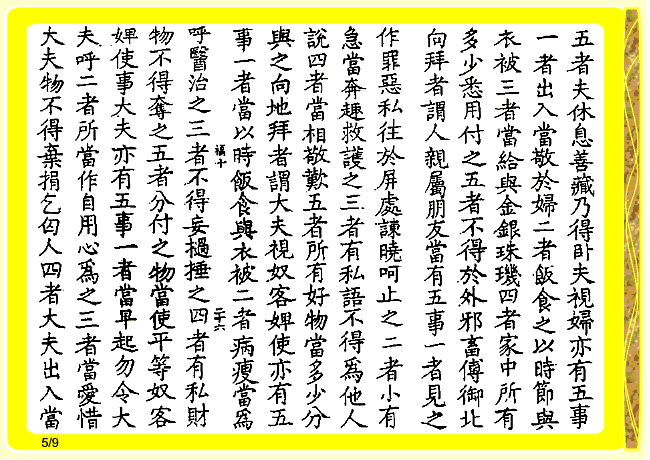 五者夫休息善藏乃得臥夫視婦亦有五事
一者出入當敬於婦二者飯食之以時節與
衣被三者當給與金銀珠璣四者家中所有
多少悉用付之五者不得於外邪畜傳御北
向拜者謂人親屬朋友當有五事一者見之
作罪惡私往於屏處諫曉呵止之二者小有
急當奔趣救護之三者有私語不得為他人
說四者當相敬歎五者所有好物當多少分
與之向地拜者謂大夫視奴客婢使亦有五
事一者當以時飯食與衣被二者病瘦當為
呼醫治之三者不得妄撾捶之四者有私財
物不得奪之五者分付之物當使平等奴客
婢使事大夫亦有五事一者當早起勿令大
夫呼二者所當作自用心為之三者當愛惜
大夫物不得棄捐乞匃人四者大夫出入當
二十六
5/9